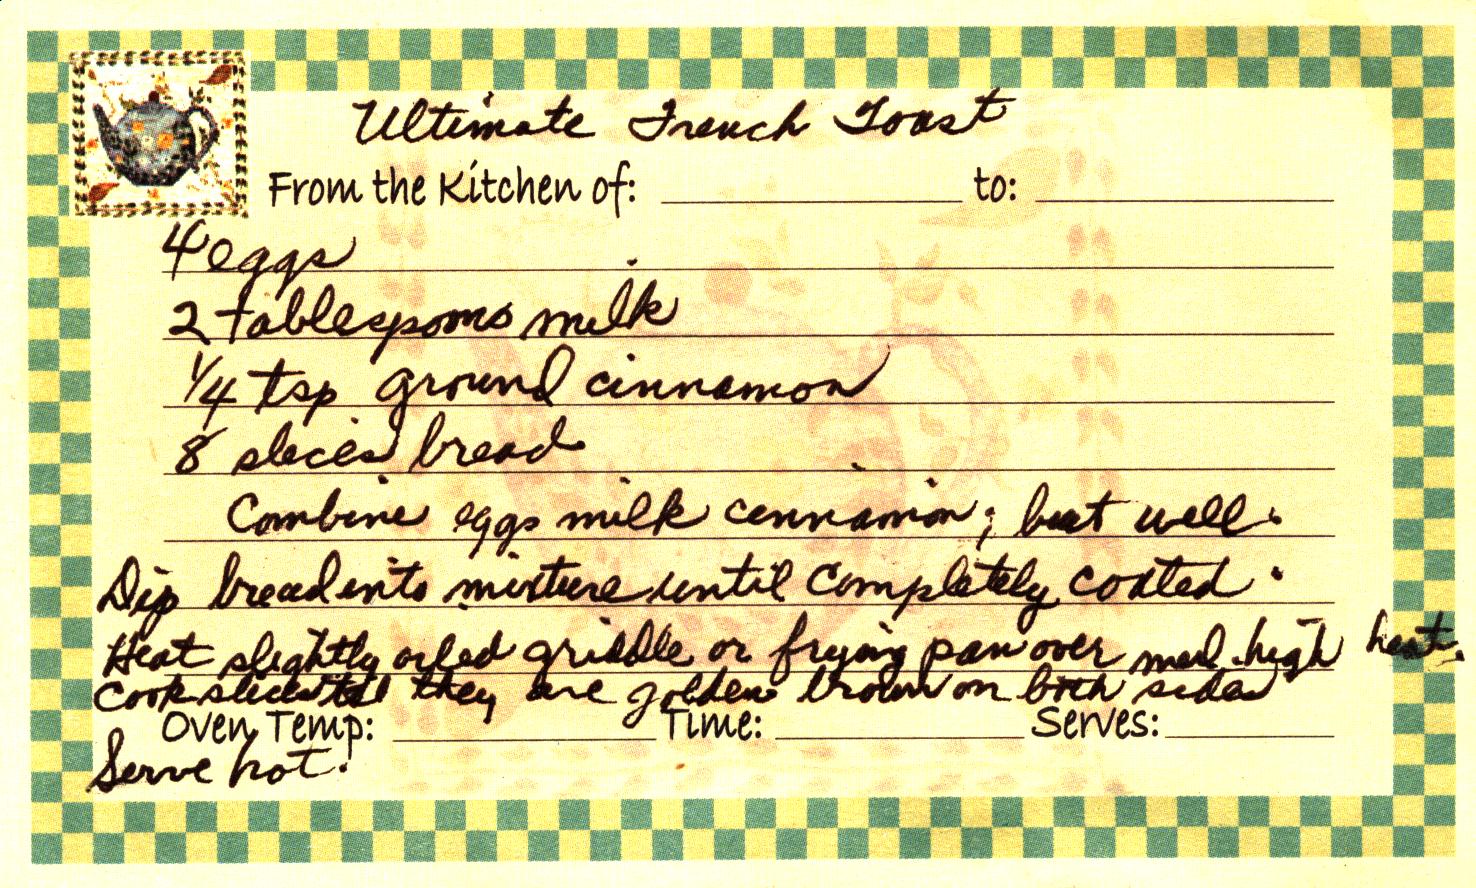 Ultimate French Toast
From the Kitchen of: to:
4 eggs
2 tablespoons milk
1/4 tsp ground cinnamon
8 slices bread
Combine eggs milk cinnamon; beat well.
Dip bread into mixture until completely coated.
Heat slightly oiled griddle or frying pan over med. high heat.
Cook slices til they are golden brown on both sides
Oven Temp: Time: Serves:
Serve hot.